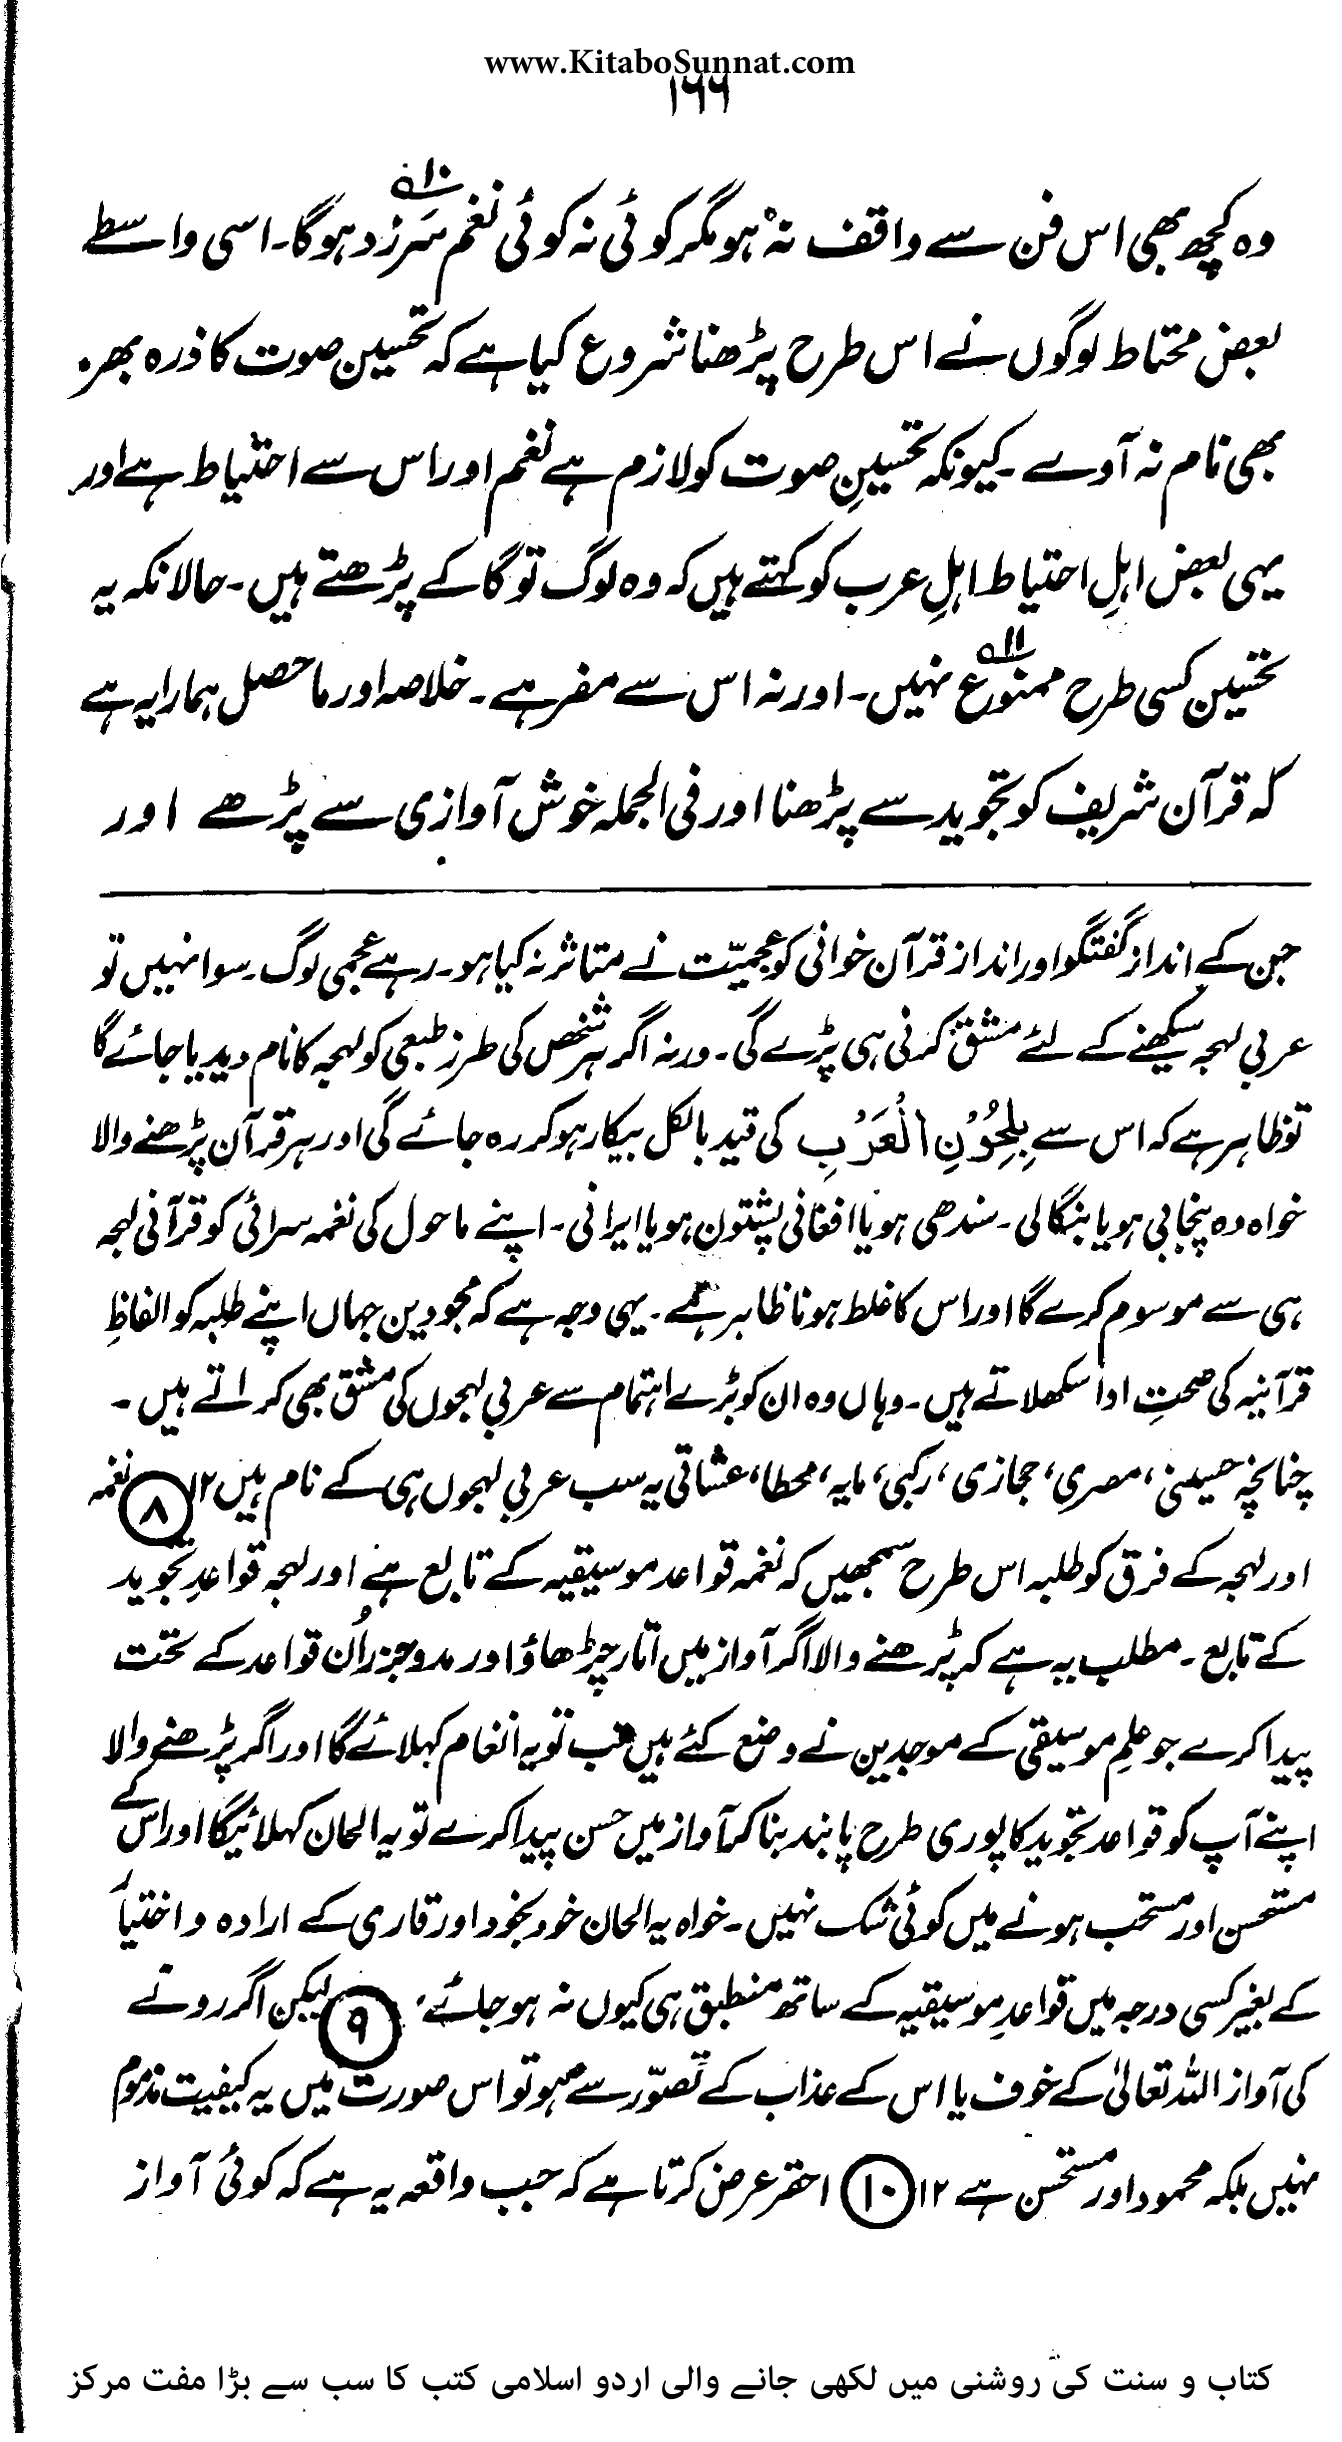 www.KitaboSunnat.com
۱۶۶
وہ کچھ بھی اس فن سے واقف نہ ہو مگر کوئی نہ کوئی نغم سَرزد ہوگا۔ اسی واسطے
؁۱۰
بعض محتاط لوگوں نے اس طرح پڑھنا شروع کیا ہے کہ تحسین صوت کا ذرہ بھر
بھی نام نہ آوے۔ کیونکہ تحسینِ صوت کو لازم ہے نغم اور اس سے احتیاط ہے اور
یہی بعض اہلِ احتیاط اہلِ عرب کو کہتے ہیں کہ وہ لوگ تو گا کے پڑھتے ہیں۔ حالانکہ یہ
تحسین کسی طرح ممنوع نہیں۔ اور نہ اس سے مفر ہے۔ خلاصہ اور ماحصل ہمارا یہ ہے
؁۱۱
کہ قرآن شریف کو تجوید سے پڑھنا اور فی الجملہ خوش آوازی سے پڑھے اور
جن کے انداز گفتگو اور انداز قرآن خوانی کو عجمیّت نے متاثر نہ کیا ہو۔ رہے عجمی لوگ۔ سوا نہیں تو
عربی لہجہ سیکھنے کے لئے مشق کرنی ہی پڑے گی۔ ورنہ اگر ہر شخص کی طرزِ طبعی کو لہجہ کا نام دیدیا جائے گا
تو ظاہر ہے کہ اس سے بِلُحُوْنِ الْعَرَبِ کی قید بالکل بیکار ہو کر رہ جائے گی اور ہر قرآن پڑھنے والا
خواہ وہ پنجابی ہو یا بنگالی۔ سندھی ہو یا افغانی پشتون ہو یا ایرانی۔ اپنے ماحول کی نغمہ سرائی کو قرآنی لہجہ
ہی سے موسوم کرے گا اور اس کا غلط ہونا ظاہر ہے۔ یہی وجہ ہے کہ مجودین جہاں اپنے طلبہ کو الفاظِ
قرآنیہ کی صحتِ ادا سکھلاتے ہیں۔ وہاں وہ ان کو بڑے اہتمام سے عربی لہجوں کی مشق بھی کراتے ہیں۔
چنانچہ حسینی، مصری، حجازی، رکبی، مایہ، محطا، عشاقی یہ سب عربی لہجوں ہی کے نام ہیں ۱۲ ۸ نغمہ
اور لہجہ کے فرق کو طلبہ اس طرح سمجھیں کہ نغمہ قواعد موسیقیہ کے تابع ہے اور لہجہ قواعدِ تجوید
کے تابع۔ مطلب یہ ہے کہ پڑھنے والا اگر آواز میں اتار چڑھاؤ اور مدوجزر اُن قواعد کے تحت
پیدا کرے جو علمِ موسیقی کے موجدین نے وضع کئے ہیں تب تو یہ انغام کہلائے گا اور اگر پڑھنے والا
اپنے آپ کو قواعد تجوید کا پوری طرح پابند بنا کر آواز میں حسن پیدا کرے تو یہ الحان کہلائیگا اور اس کے
مستحسن اور مستحب ہونے میں کوئی شک نہیں۔ خواہ یہ الحان خود بخود اور قاری کے ارادہ و اختیار
کے بغیر کسی درجہ میں قواعدِ موسیقیہ کے ساتھ منطبق ہی کیوں نہ ہو جائے، ۹ لیکن اگر رونے
کی آواز اللہ تعالیٰ کے خوف یا اس کے عذاب کے تصوّر سے ہو تو اس صورت میں یہ کیفیت مذموم
نہیں بلکہ محمود اور مستحسن ہے ۱۲ ۱۰ احقر عرض کرتا ہے کہ جب واقعہ یہ ہے کہ کوئی آواز
کتاب و سنت کی روشنی میں لکھی جانے والی اردو اسلامی کتب کا سب سے بڑا مفت مرکز